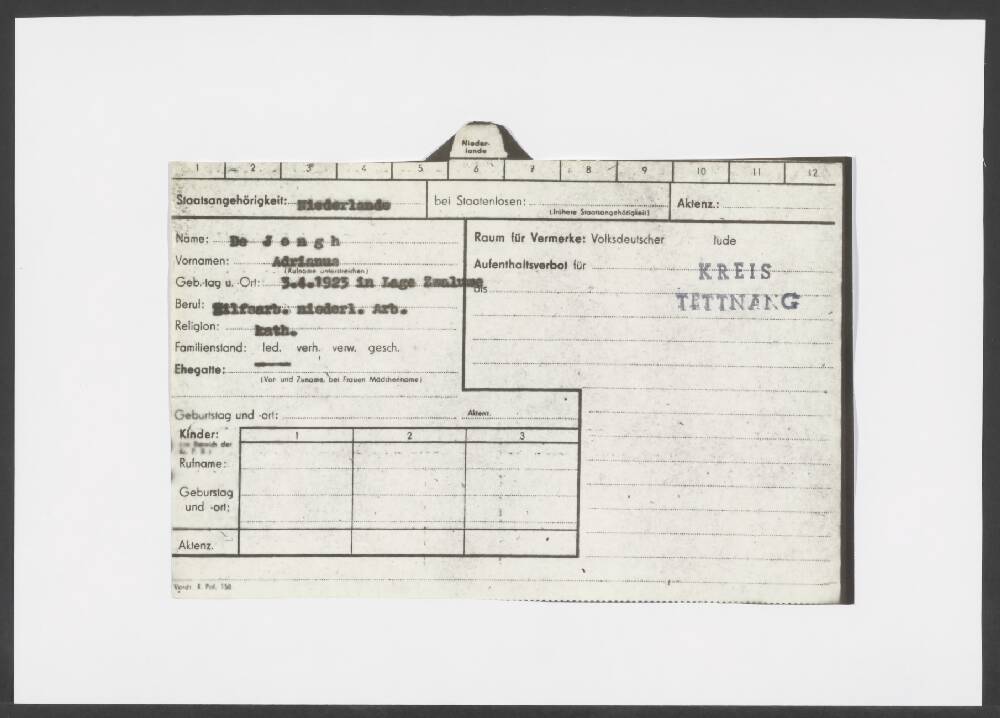 Nieder-
lande
1 2 3 4 5 6 7 8 9 10 11 12
Staatsangehörigkeit: Niederlande bei Staatenlosen: Aktenz.:
(frühere Staatsangehörigkeit)
Name: De Jongh
Vornamen: Adrianus
(Rufname unterstreichen)
Geb.-tag u. -Ort: 3.4.1925 in Lage
Beruf: Hilfsarb. niederl. Arb.
Religion: kath.
Familienstand: led. verh. verw. gesch.
Ehegatte:
(Vor- und Zuname, bei Frauen Mädchenname)
Geburtstag und -ort: Aktenz.
Kinder: 1 2 3
Bereich der
Rufname:
Geburtstag
und -ort:
Aktenz.
Raum für Vermerke: Volksdeutscher Jude
Aufenthaltsverbot für
bis
KREIS
TETTNANG
Vordr. R. Pol. 150